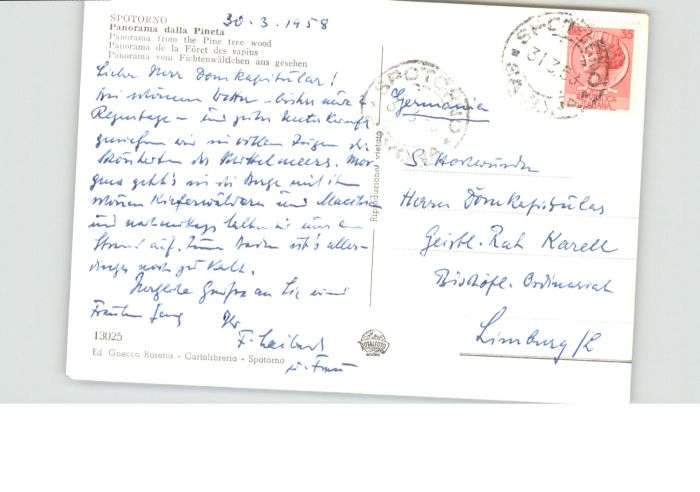 SPOTORNO
30.3.1958
Panorama dalla Pineta
Panorama from the Pine tree wood
Panorama de la Fôret des sapins
Panorama vom Fichtenwäldchen aus gesehen
Lieber Herr Domkapitular!
Bei schönem Wetter - bisher nur 2
Regentage - und guter Unterkunft
genießen wir in vollen Zügen die
Schönheiten des Mittelmeers. Mor-
gens geht's in die Berge mit ihren
schönen Kiefernwäldern und
und nachmittags halten wir uns am
Strand auf. Zum Baden ist's aller-
dings noch zu kalt.
Herzliche Grüße an Sie und
Fräulein
Ihr
F.
u. Frau
13025
Ed Guecco Rosetta - Cartolibreria - Spotorno
Riproduzione vietata
SPOTORNO
SPOTORNO
Germania
S. Hochwürden
Herrn Domkapitular
Geistl. Rat Karell
Bischöfl. Ordinariat
Limburg/L